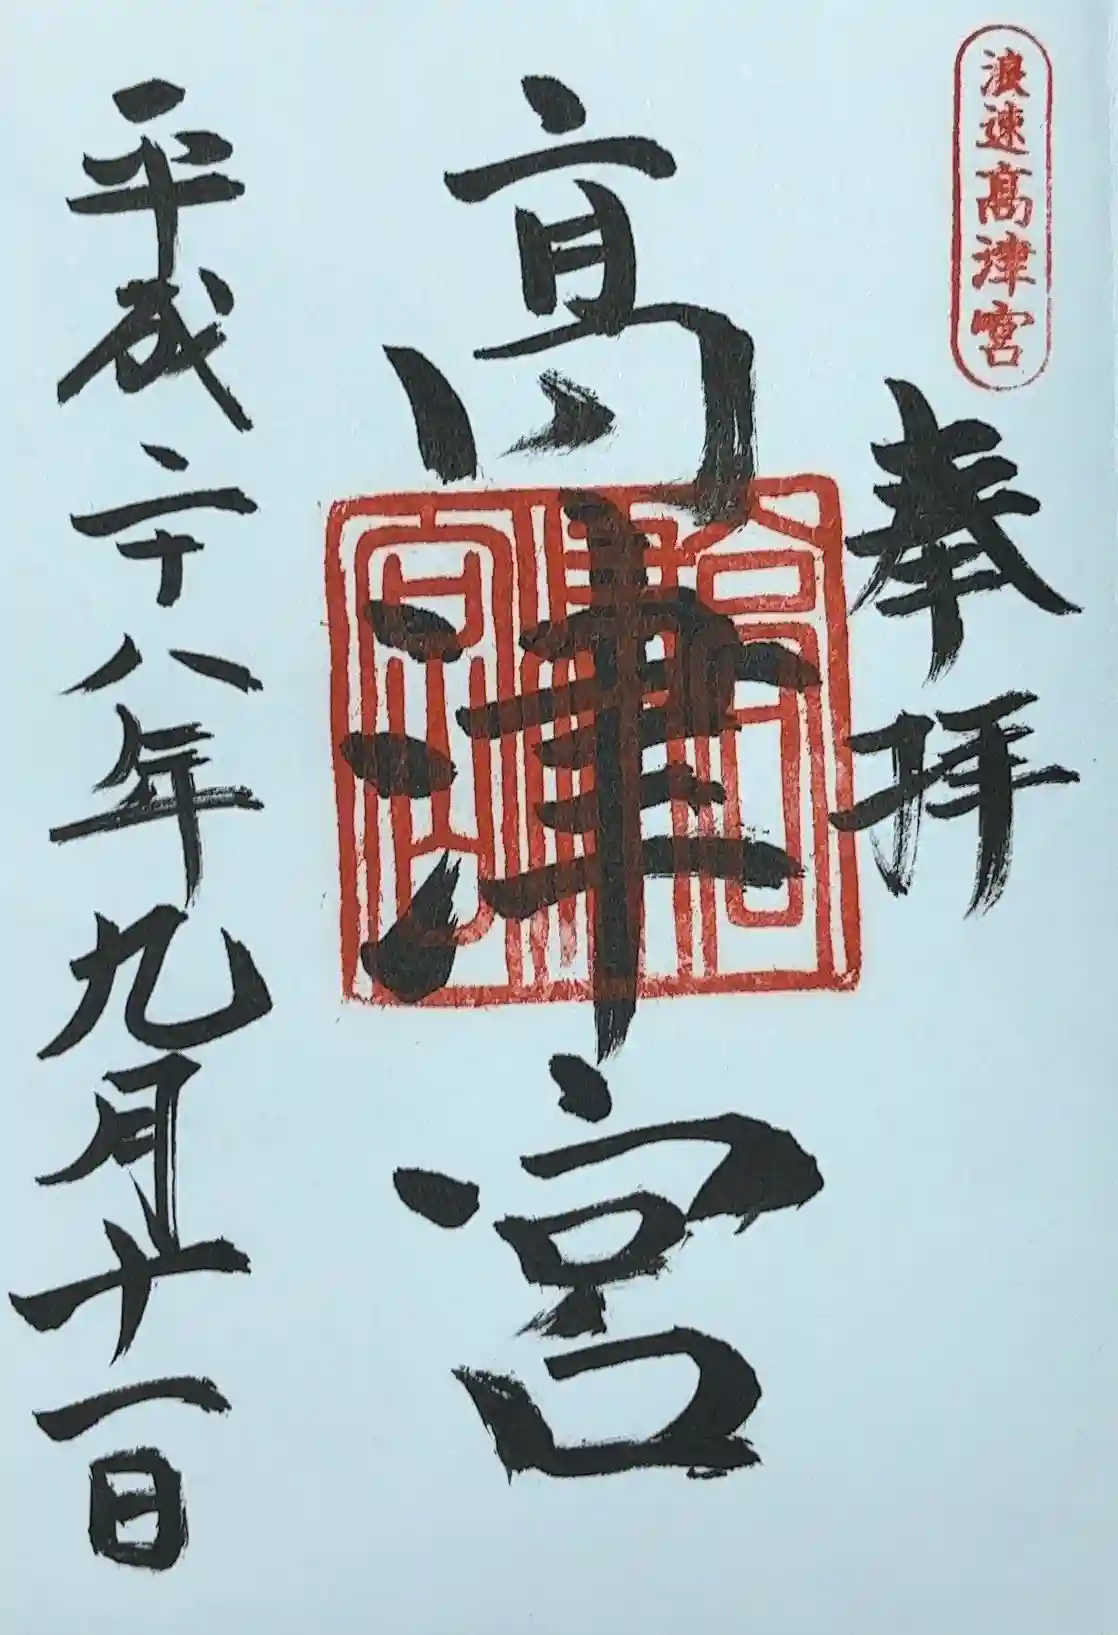 浪速髙津宮
奉拝
髙津宮
髙津宮
平成二十八年九月十一日